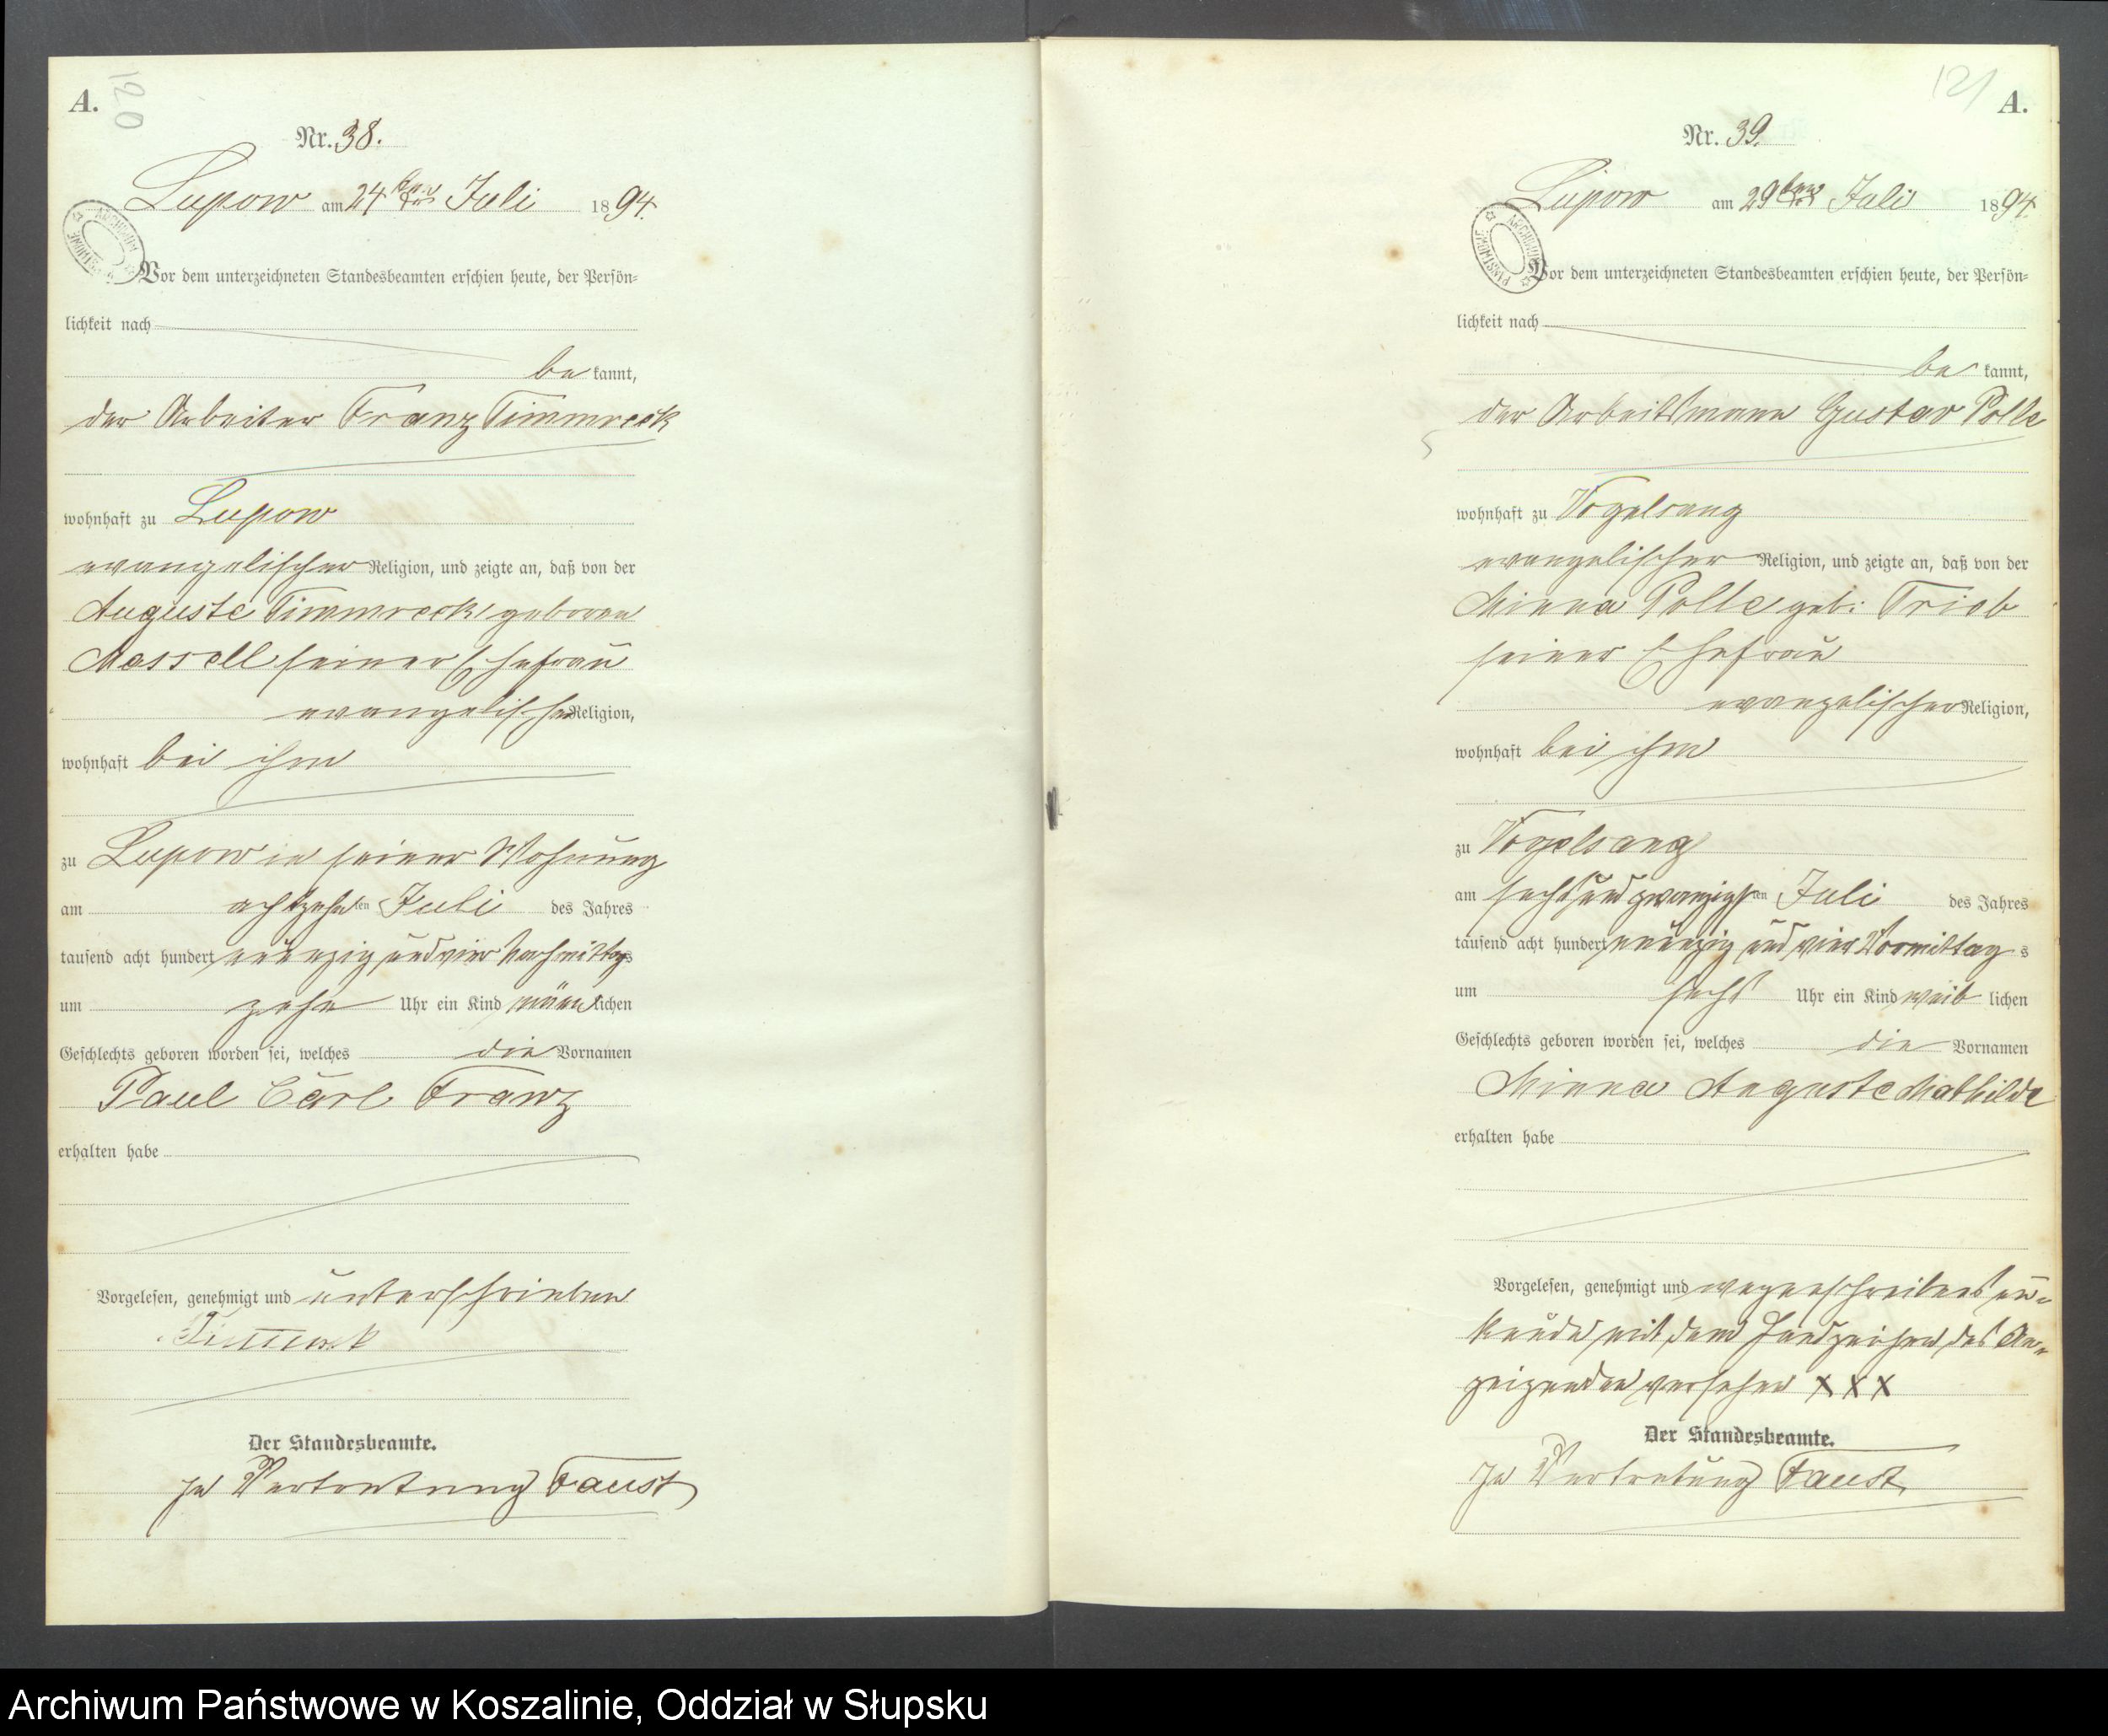 A.
120
Nr. 38.
Lupow am 24ten Juli 1894.
Vor dem unterzeichneten Standesbeamten erschien heute, der Persön-
lichkeit nach
bekannt,
der Arbeiter Franz Timmreck
wohnhaft zu Lupow
evangelischer Religion, und zeigte an, daß von der
Auguste Timmreck geboren
Massell seiner Ehefrau
evangelischer Religion,
wohnhaft bei ihm
zu Lupow in seiner Wohnung
am achtzehnten Juli des Jahres
tausend acht hundert neunzig und vier Nachmittags
um zehn Uhr ein Kind männlichen
Geschlechts geboren worden sei, welches die Vornamen
Paul Carl Franz
erhalten habe
Vorgelesen, genehmigt und unterschrieben
Timmreck
Der Standesbeamte.
In Vertretung Faust
121
A.
Nr. 39.
Lupow am 29ten Juli 1894.
ARCHIWUM PAŃSTWOWE
Vor dem unterzeichneten Standesbeamten erschien heute, der Persön-
lichkeit nach
bekannt,
der Arbeitsmann Gustav Polle
wohnhaft zu Vogelsang
evangelischer Religion, und zeigte an, daß von der
Minna Polle geb: Triob
seiner Ehefrau
evangelischer Religion,
wohnhaft bei ihm
zu Vogelsang
am sechsundzwanzigsten Juli des Jahres
tausend acht hundert neunzig und vier Vormittags
um sechs Uhr ein Kind weiblichen
Geschlechts geboren worden sei, welches die Vornamen
Minna Auguste Mathilde
erhalten habe
Vorgelesen, genehmigt und wegen Schreibensun-
kunde mit dem Handzeichen des An-
zeigenden versehen X X X
Der Standesbeamte.
In Vertretung Faust
Archiwum Państwowe w Koszalinie, Oddział w Słupsku